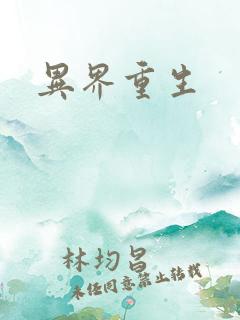 異界重生
林均昌
未經同意禁止轉載